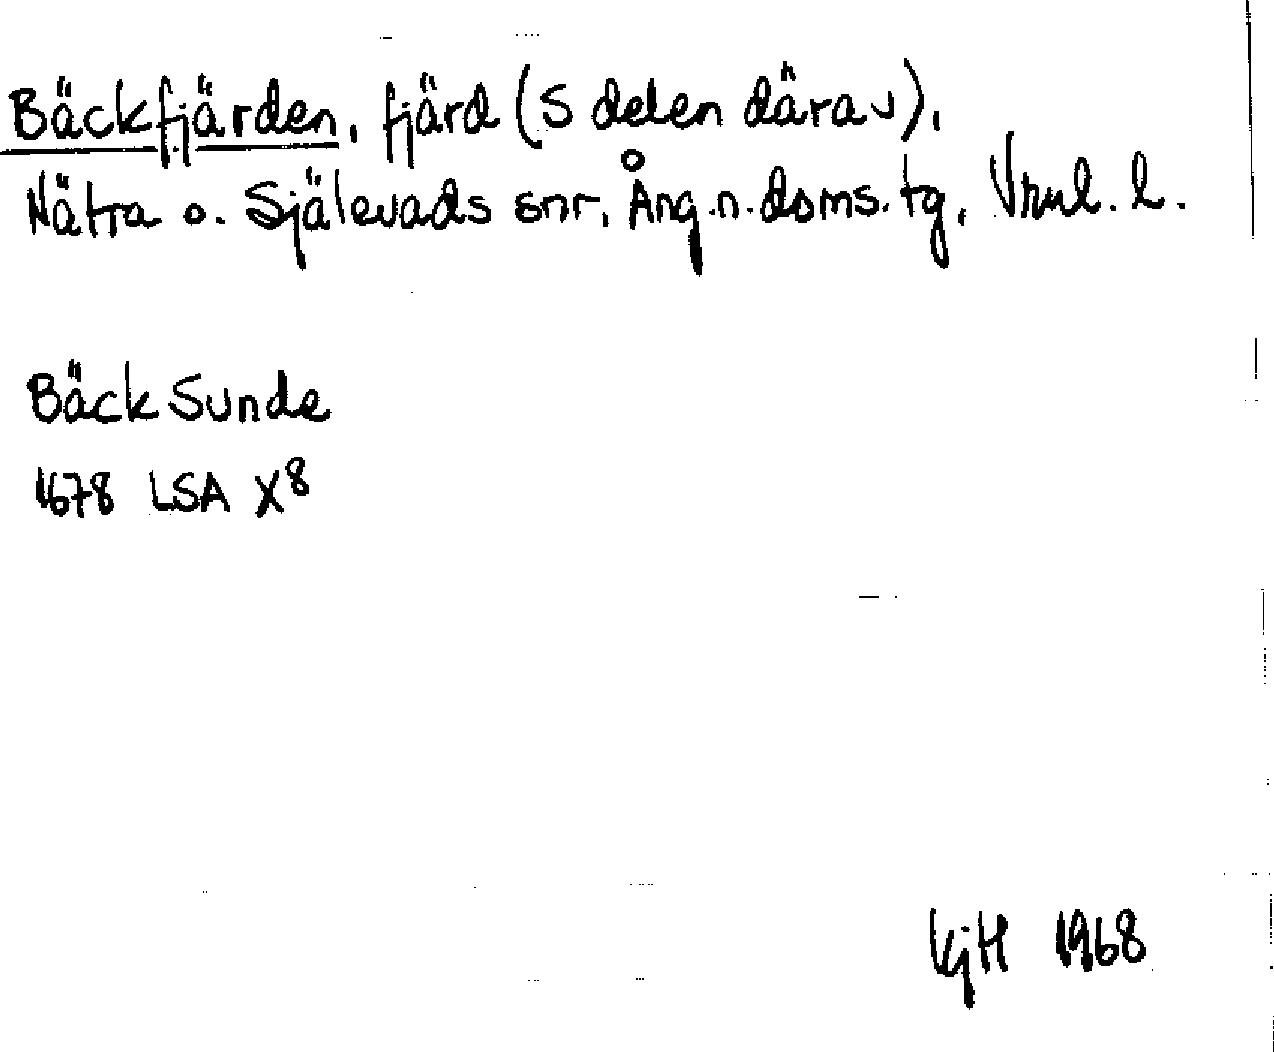 Bäckfjärden, fjärd (S delen därav),
Nätra o. Själevads snr, Ång.n.doms.tg, Vrnl. l.
Bäck Sunde
1678 LSA X8
KjH 1968